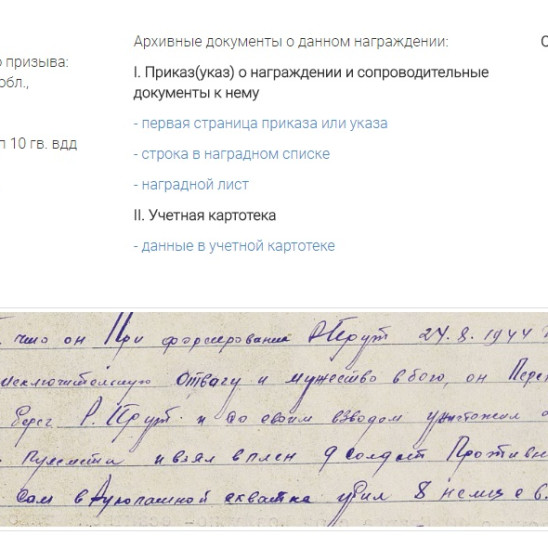 Архивные документы о данном награждении:
о призыва:
I. Приказ(указ) о награждении и сопроводительные
обл.,
документы к нему
- первая страница приказа или указа
п 10 гв. вдд
- строка в наградном списке
- наградной лист
II. Учетная картотека
- данные в учетной картотеке
что он При форсировании Р Прут 24.8.1944
исключительную отвагу и мужество в бою, он
берег Р. Прут. и со своим взводом уничтожил
пулемета и взял в плен 9 солдат
сам в рукопашной схватке убил 8 немцев.